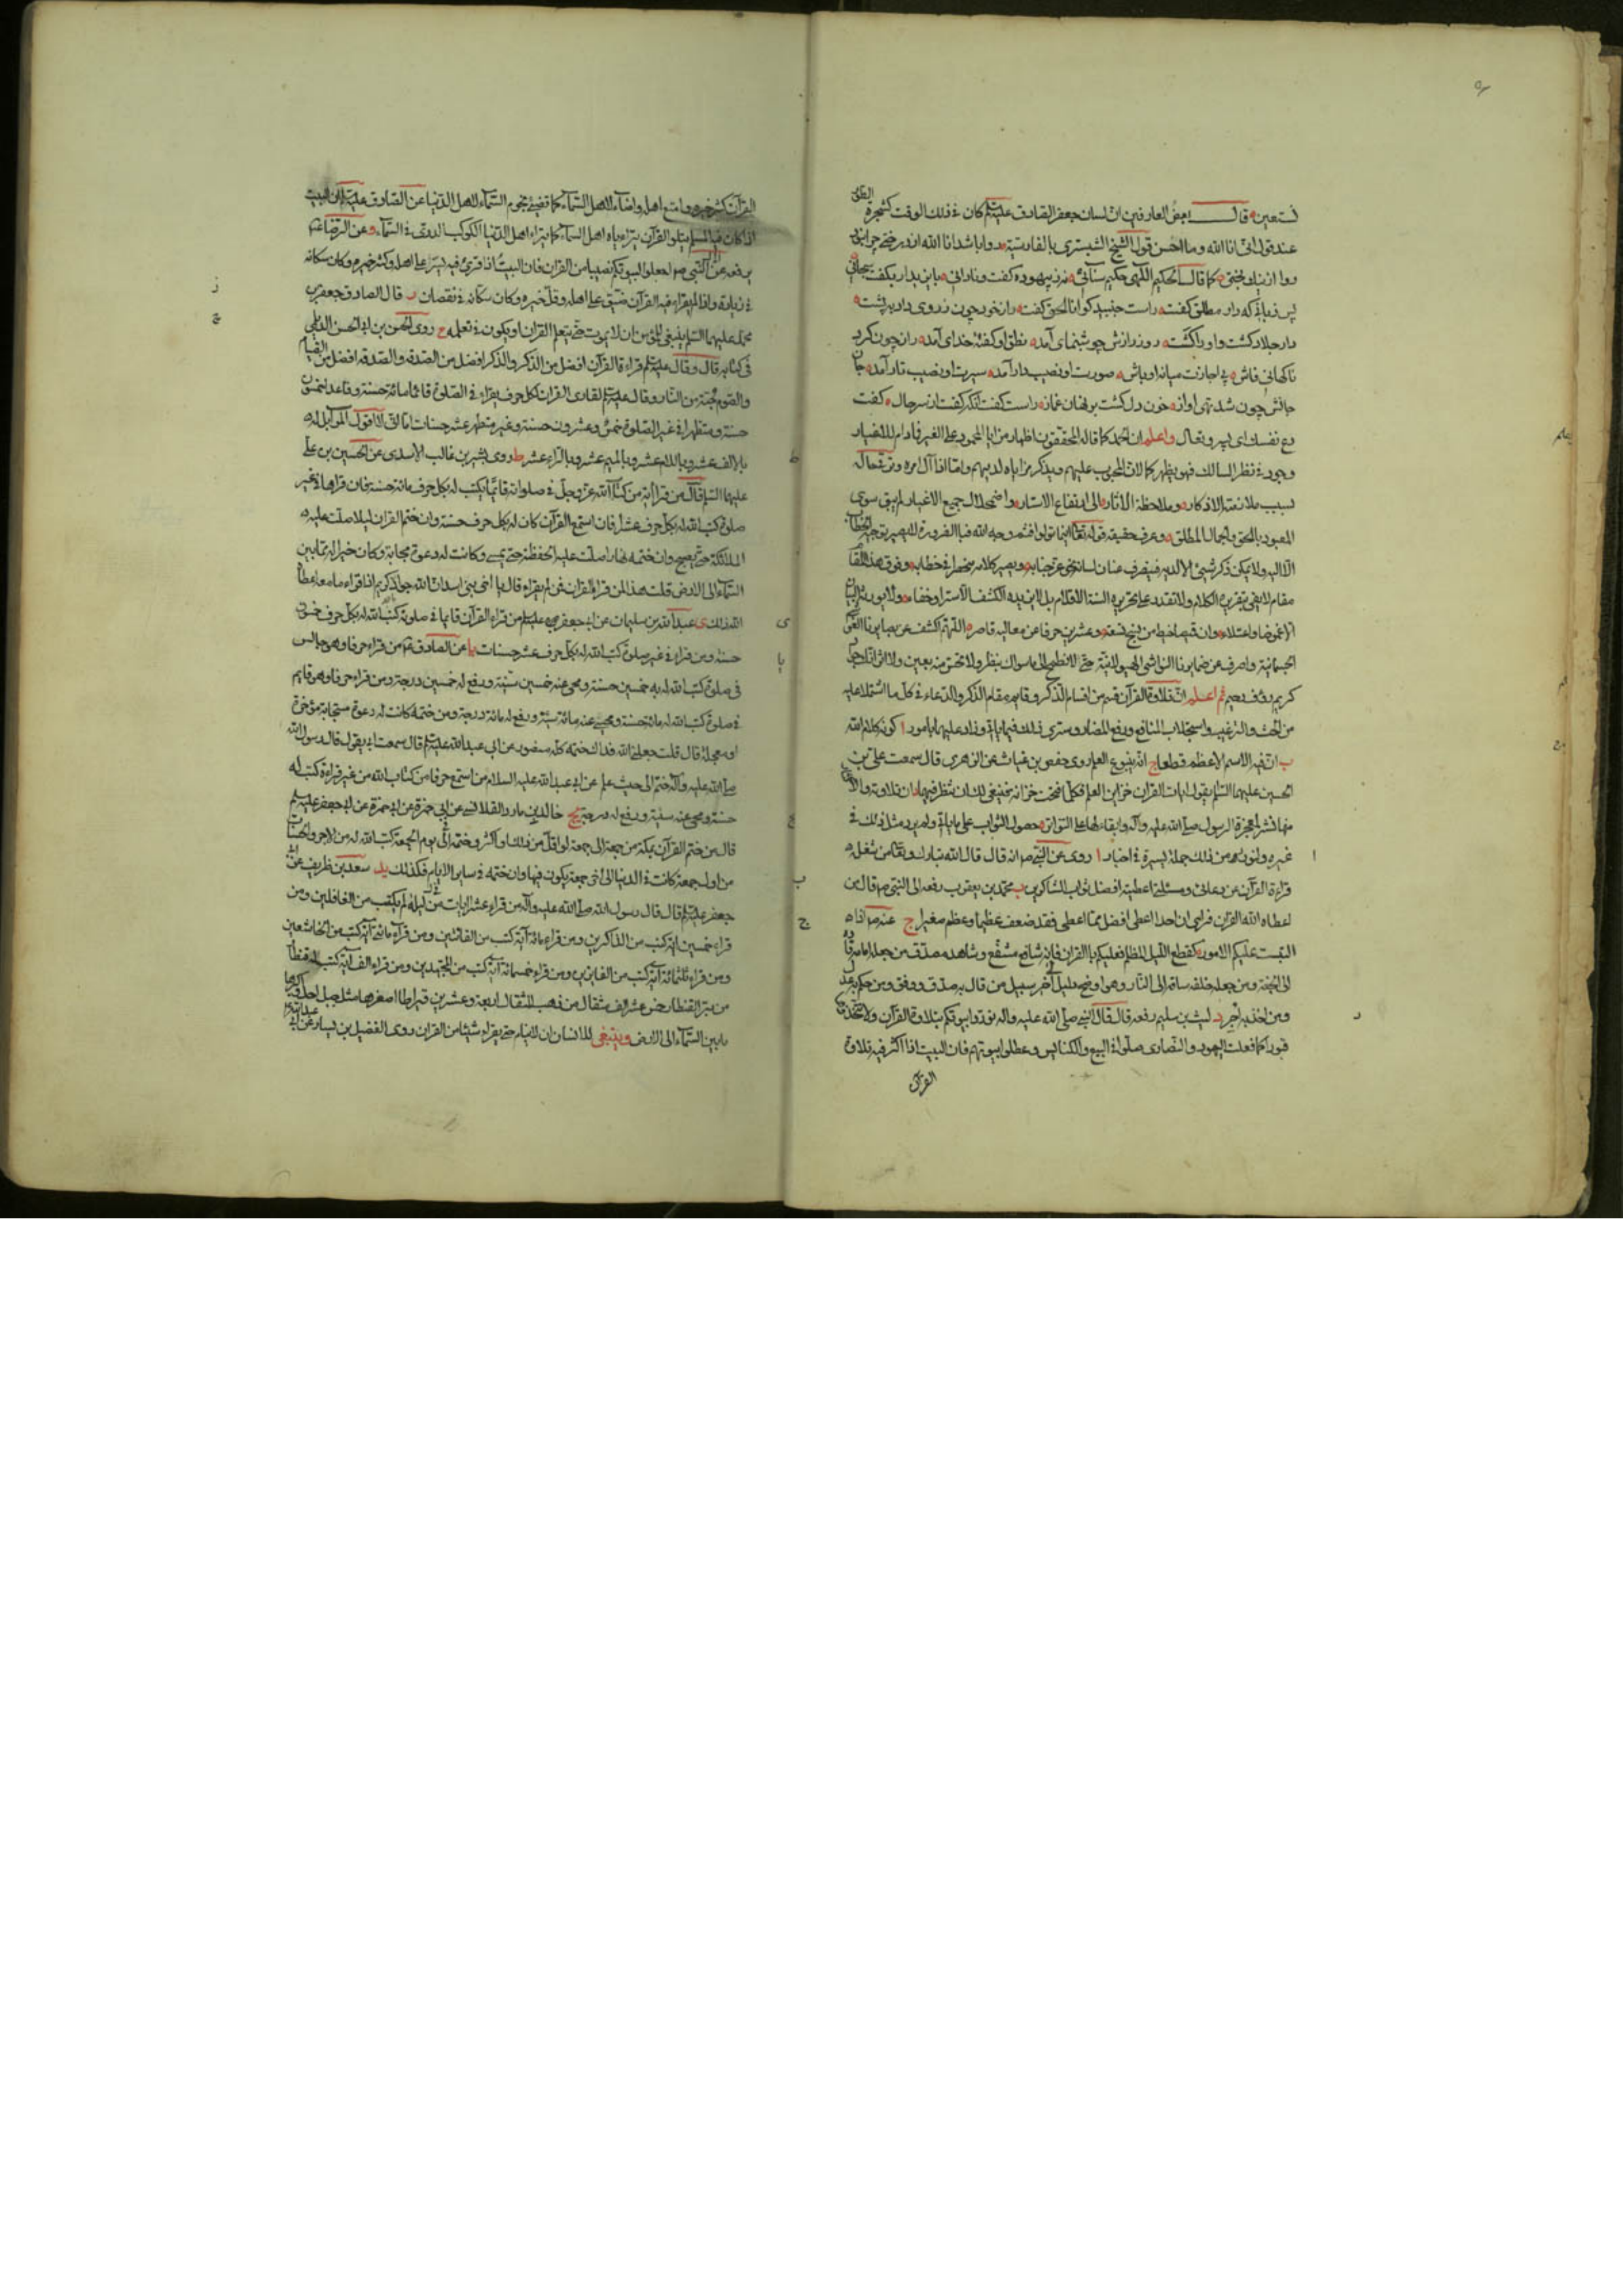 نستعين قال بعض العارفين ان لسان جعفر الصادق عليه السلم كان فى ذلك الوقت كشجرة الطور
عند قول انى انا الله وما احسن قول الشيخ الشبسترى بالفارسية روا باشد انا الله از درختى چرا نبود
روا از نيك بختى كما قال الحكيم الالهى حكيم سنائى
پس زبانى كه راز مطلق گفت راست جنبيد كو انا الحق گفت راز خود چون ز روى داد بپشت
راز جلاد گشت و او را كشت روز رازش چو شب نماى آمد نطق او گفته خداى آمد راز چون كرد
ناگهانى فاش بى اجازت ميانه اوباش صورت او نصيب دار آمد سيرت او نصيب يار آمد جان
جانش چون شد تهى ز آواز خون دل گشت بر نهان غماز راست گفت آنكه گفت از سر حال گفت
دع نفسك اى پسر و تعال واعلم ان الحمد كما قاله المحققون اظهار مزايا المحمود على الغير فما دام للاغيار
وجود فى نظر السالك فهو يظهر كمالات المحبوب عليهم ويذكر مزاياه لديهم واما اذا آل امره وترقى حاله
بسبب ملازمته الاذكار وملاحظة الآثار الى ارتفاع الاستار واضمحلال جميع الاغيار لم يبق سوى
المعبود بالحق والجمال المطلق وعرف حقيقة قوله تعالى اينما تولوا فثم وجه الله فبالضرورة لا يصير توجيه الخطاب
الا اليه ولا يمكن ذكر شيئ الا لديه فيصرف عنان لسانه نحو عز جنابه ويصير كلامه منحصرا فى خطابه وفوق هذا المقام
مقام لا يفى بتقريره الكلام ولا تقدر على تحريره السنة الاقلام بل لا يزيده الكشف الا سترا وخفاء ولا يورثه البيان
الا غموضا واعتلاء وان قميصا خيط من نسج تسعة وعشرين حرفا عن معاليه قاصر اللهم اكشف عن بصايرنا الغواشى
الجسمانية واصرف عن ضمايرنا النواشى الهيولانية حتى لا نطمح الى ما سواك بنظر ولا نحس منه بعين ولا اثر انك جواد
كريم رؤف رحيم ثم اعلم ان تلاوة القرآن قسم من اقسام الذكر وقايم مقام الذكر والدعاء فى كل ما اشتملا عليه
من الحث والترغيب واستجلاب المنافع ودفع المضار وسترى ذلك فيما ياتى وزاد عليهما بامور ا كونه كلام الله
ب ان فيه الاسم الاعظم قطعا ج انه ينبوع العلم روى حفص بن غياث عن الزهرى قال سمعت على بن
الحسين عليهما السلم يقول ايات القرآن خزاين العلم فكلما فتحت خزانة فينبغى لك ان تنظر فيها د ان تلاوته والاكثار
منها نشر لمعجزة الرسول صلى الله عليه وآله وابقاء لها على التواتر ه حصول الثواب على ما ياتى ولم يرد مثل ذلك فى
غيره ولنورد من ذلك جملة يسيرة فى اخبار ا روى عن النبى ص انه قال قال الله تبارك وتعالى من شغله
قراءة القرآن عن دعائى ومسئلتى اعطيته افضل ثواب الشاكرين ب محمد بن يعقوب رفعه الى النبى ص قال من
اعطاه الله القرآن فراى ان احدا اعطى افضل مما اعطى فقد ضعف عظيما وعظم صغيرا ج عنه ص اذا
التبست عليكم الامور كقطع الليل المظلم فعليكم بالقرآن فانه شافع مشفع وشاهد مصدق من جعله امامه قاده
الى الجنة ومن جعله خلفه ساقه الى النار وهو اوضح دليل الى خير سبيل من قال به صدق ووفق ومن حكم به عدل
ومن اخذ به اجر د ليث بن سليم رفعه قال قال النبى صلى الله عليه واله نوروا بيوتكم بتلاوة القرآن ولا تتخذوها
قبورا كما فعلت اليهود والنصارى صلوا فى البيع والكنايس وعطلوا بيوتهم فان البيت اذا اكثر فيه تلاوة
القرآن
القرآن كثر خيره وامتع اهله واضاء لاهل السماء كما تضئ نجوم السماء لاهل الدنيا ه عن الصادق عليه السلم ان البيت
اذا كان فيه المسلم يتلو القرآن يتراياه اهل السماء كما يترايا اهل الدنيا الكوكب الدرى فى السماء و عن الرضا عليه السلم
يرفعه عن النبى ص اجعلوا لبيوتكم نصيبا من القرآن فان البيت اذا قرئ فيه يسر على اهله وكثر خيره وكان سكانه
فى زيادة واذا لم يقرا فيه القرآن ضيق على اهله وقل خيره وكان سكانه فى نقصان ز قال الصادق جعفر بن
محمد عليهما السلم ينبغى للمؤمن ان لا يموت حتى يتعلم القرآن او يكون فى تعلمه ح روى الحسن بن ابى الحسن الديلمى
فى كتابه قال وقال عليه السلم قراءة القرآن افضل من الذكر والذكر افضل من الصدقة والصدقة افضل من الصيام
والصوم جنة من النار وقال عليه السلم لقارى القرآن بكل حرف يقراء فى الصلوة قائما مائة حسنة وقاعدا خمسون
حسنة ومتطهرا فى غير الصلوة خمس وعشرون حسنة وغير متطهر عشر حسنات اما انى لا اقول المر بل له
بالالف عشر وباللام عشر وبالميم عشر وبالراء عشر ط روى بشر بن غالب الاسدى عن الحسين بن على
عليهما السلم قال من قراء اية من كتاب الله عز وجل فى صلواته قائما يكتب له بكل حرف مائة حسنة فان قراها فى غير
صلوة كتب الله له بكل حرف عشرا فان استمع القرآن كان له بكل حرف حسنة وان ختم القرآن ليلا صلت عليه
الملائكة حتى يصبح وان ختمه نهارا صلت عليه الحفظة حتى يمسى وكانت له دعوة مجابة وكان خيرا له مما بين
السماء الى الارض قلت هذا لمن قراء القرآن فمن لم يقراء قال يا اخى بنى اسد ان الله جواد كريم اذا قراء ما معه اعطاه
الله ذلك ى عبد الله بن سليمان عن ابى جعفر عليه السلم من قراء القرآن قائما فى صلوته كتب الله له بكل حرف خمسين
حسنة ومن قراء فى غير صلوة كتب الله له بكل حرف عشر حسنات يا عن الصادق ع من قراء حرفا وهو جالس
فى صلوة كتب الله له به خمسين حسنة ومحى عنه خمسين سيئة ورفع له خمسين درجة ومن قراء حرفا وهو قايم
فى صلوة كتب الله له مائة حسنة ومحى عنه مائة سيئة ورفع له مائة درجة ومن ختمه كانت له دعوة مستجابة مؤخرة
او معجلة قال قلت جعلنى الله فداك ختمه كله منصور عن ابى عبد الله عليه السلم قال سمعت ابى يقول قال رسول الله
صلى الله عليه وآله ختم الى حيث علم عن ابى عبد الله عليه السلام من استمع حرفا من كتاب الله من غير قراءة كتب له
حسنة ومحى عنه سيئة ورفع له درجة يج خالد بن مارد القلانسى عن ابى حمزة عن ابى جعفر عليه السلم
قال من ختم القرآن بمكة من جمعة الى جمعة او اقل من ذلك او اكثر وختمه فى يوم الجمعة كتب الله له من الاجر والحسنات
من اول جمعة كانت فى الدنيا الى اخر جمعة يكون فيها وان ختمه فى ساير الايام فكذلك يد سعد بن ظريف عن ابى
جعفر عليه السلم قال قال رسول الله صلى الله عليه وآله من قراء عشر ايات فى ليلة لم يكتب من الغافلين ومن
قراء خمسين اية كتب من الذاكرين ومن قراء مائة آية كتب من القانتين ومن قراء مائتى آية كتب من الخاشعين
ومن قراء ثلثمائة آية كتب من الفايزين ومن قراء خمسمائة آية كتب من المجتهدين ومن قراء الف آية كتب له قنطار
من بر القنطار خمس عشر الف مثقال من ذهب المثقال اربعة وعشرين قيراطا اصغرها مثل جبل احد واكبرها
ما بين السماء الى الارض وينبغى للانسان ان لا ينام حتى يقراء شيئا من القرآن روى الفضيل بن يسار عن ابى عبد الله